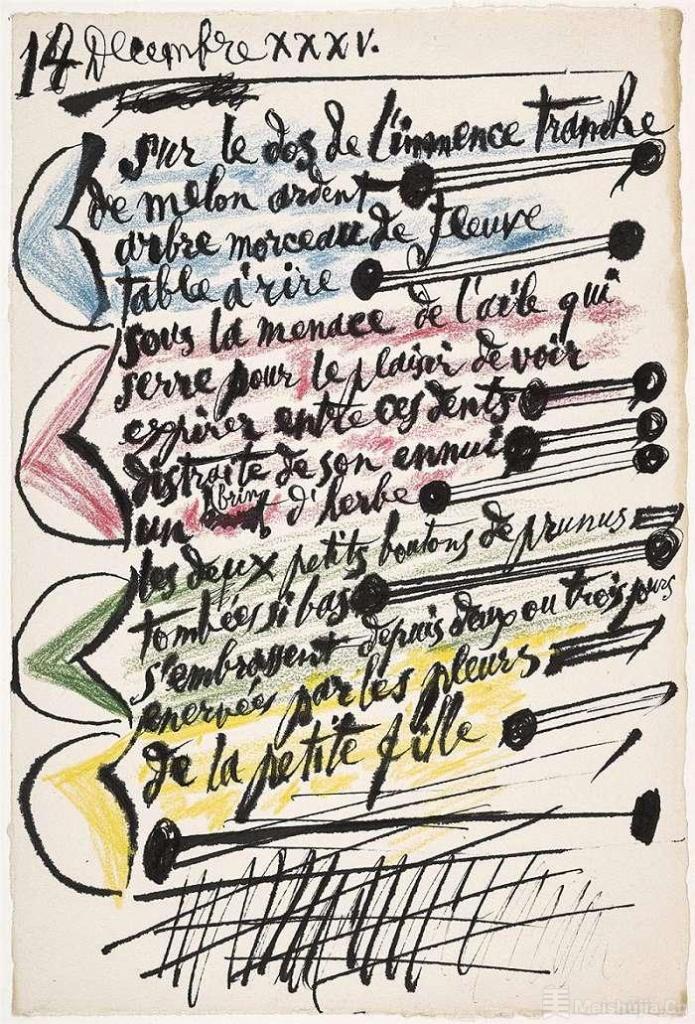 14 Decembre XXXV.
sur le dos de l'immence tranche
de melon ardent
arbre morceau de fleuve
table à rire
sous la menace de l'aile qui
serre pour le plaisir de voir
expirer entre ces dents
distraite de son ennui
un brin d'herbe
les deux petits boutons de prunus
tombées si bas
s'embrassent depuis deux ou trois jours
enervées par les pleurs
de la petite fille
Meishujia.Cn